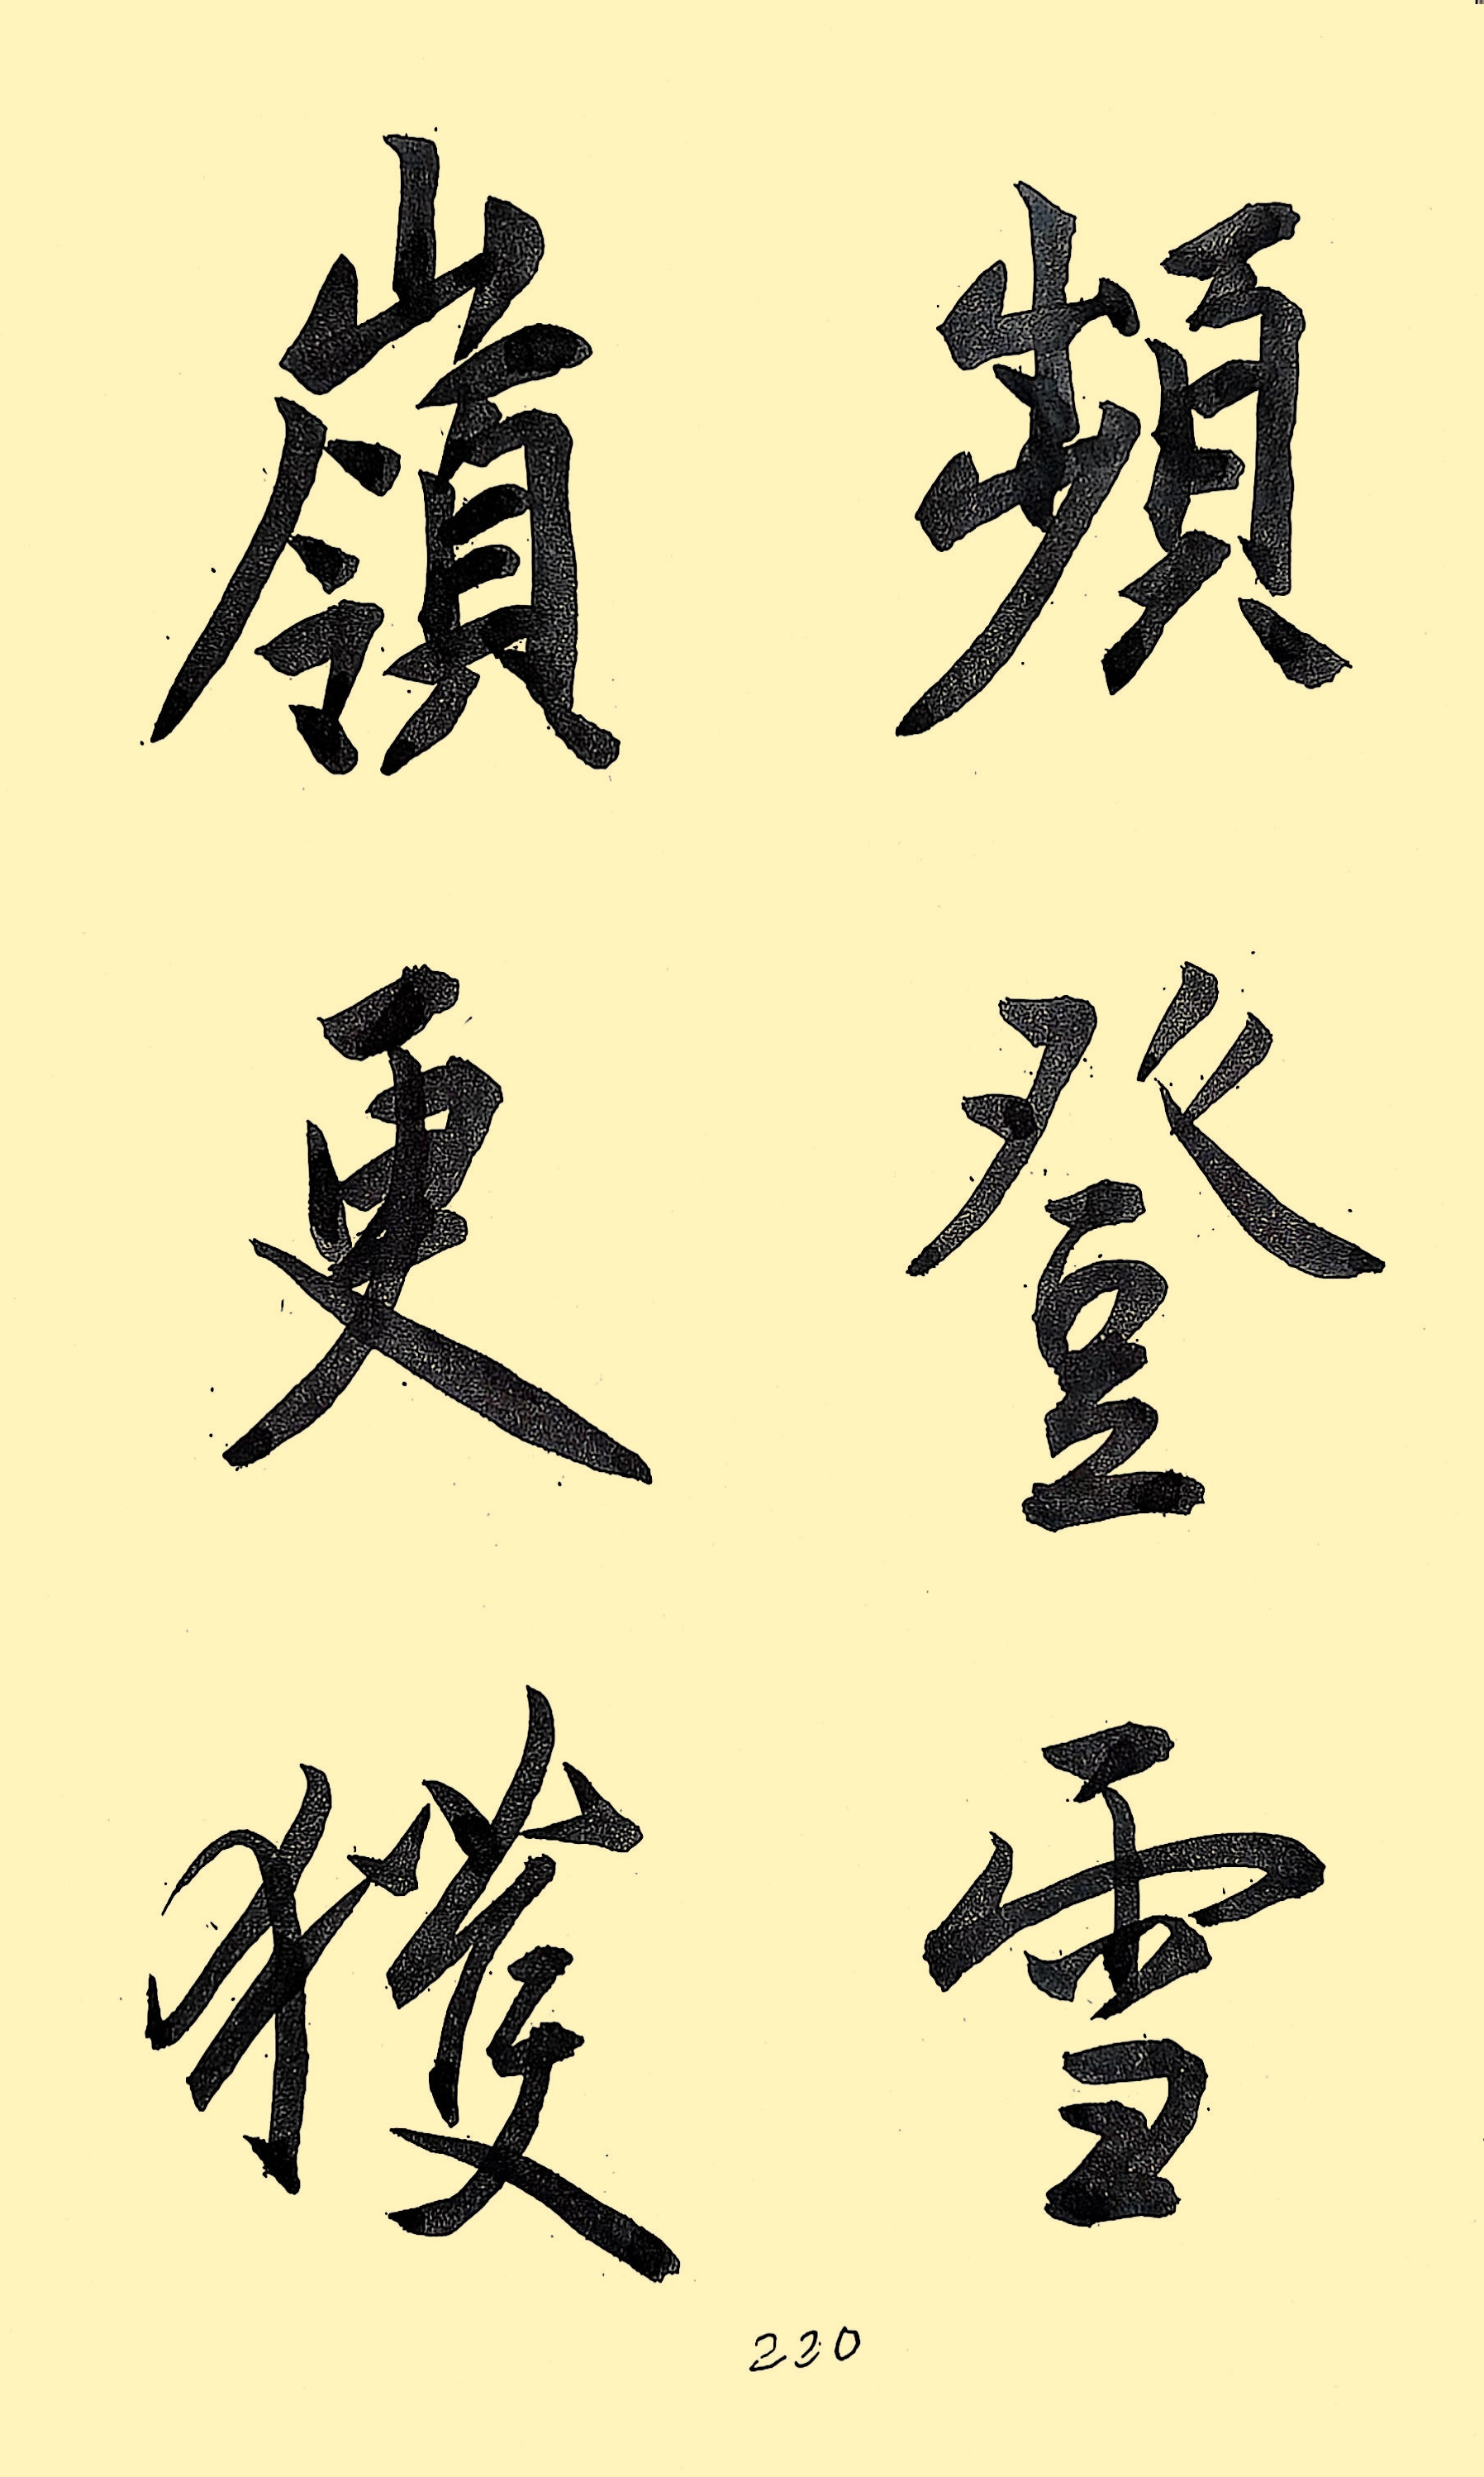 頻登雪
嶺更獲
230